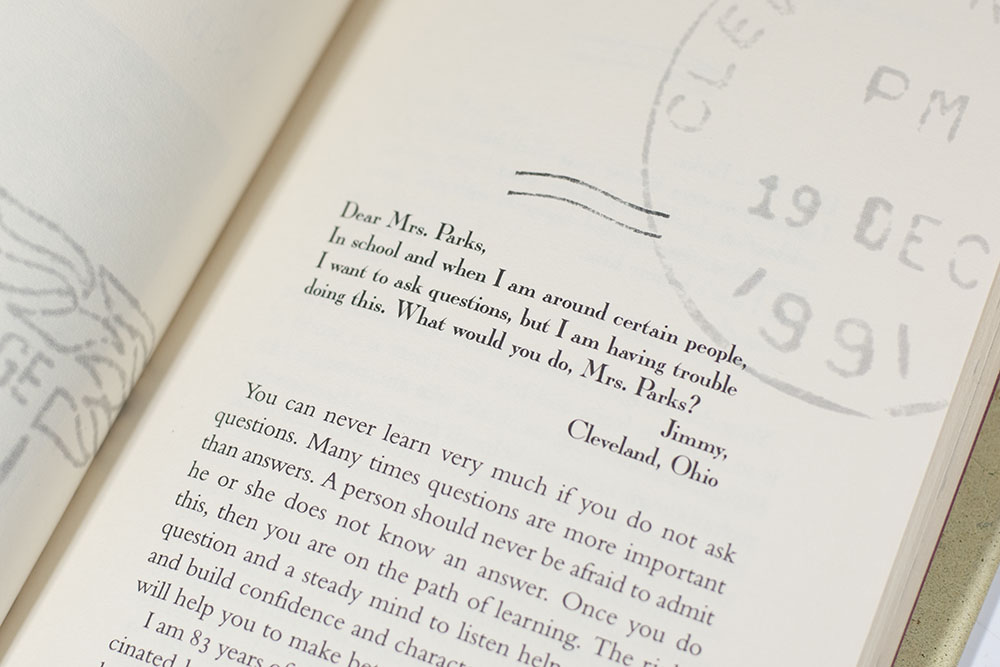 CLEV
PM
19 DEC
1991
GE
Dear Mrs. Parks,
In school and when I am around certain people,
I want to ask questions, but I am having trouble
doing this. What would you do, Mrs. Parks?
Jimmy,
Cleveland, Ohio
You can never learn very much if you do not ask
questions. Many times questions are more important
than answers. A person should never be afraid to admit
he or she does not know an answer. Once you do
this, then you are on the path of learning. The
question and a steady mind to listen help
and build confidence and charact
will help you to make bet
I am 83 years
cinated